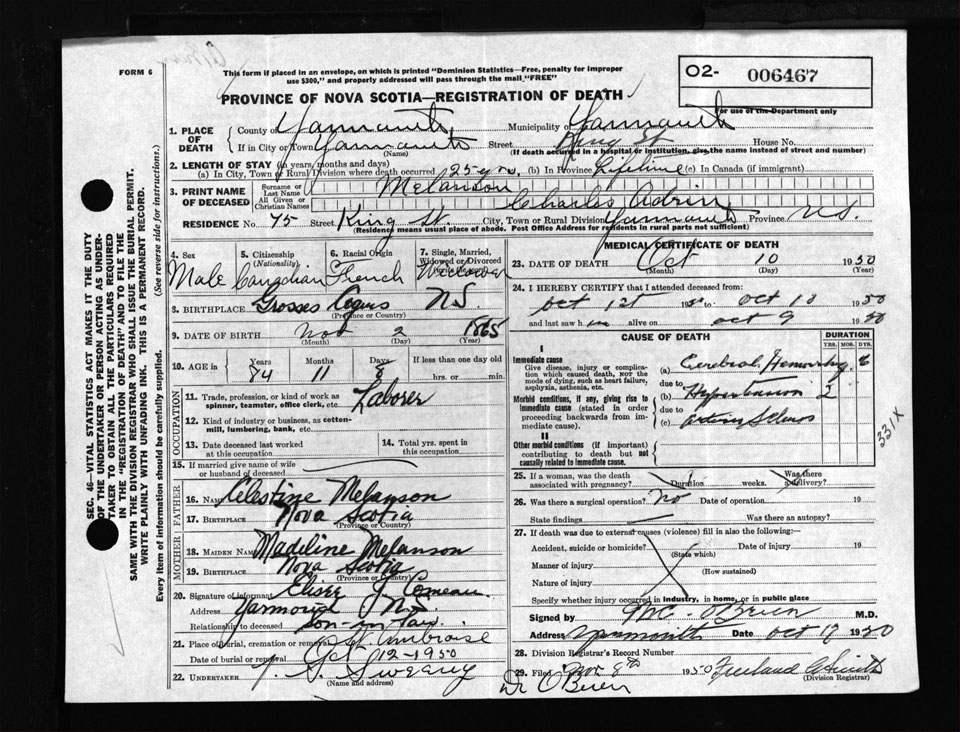 FORM 6
This form if placed in an envelope, on which is printed "Dominion Statistics—Free, penalty for improper
use $300," and properly addressed will pass through the mail "FREE"
02- 006467
For use of the Department only
PROVINCE OF NOVA SCOTIA—REGISTRATION OF DEATH
1. PLACE OF DEATH
County of Yarmouth Municipality of Yarmouth
If in City or Town Yarmouth Street King St House No.
(Name) (If death occurred in a hospital or institution, give the name instead of street and number)
2. LENGTH OF STAY (in years, months and days)
(a) In City, Town or Rural Division where death occurred 25 yrs. (b) In Province Lifetime (c) In Canada (if immigrant)
3. PRINT NAME OF DECEASED
Surname or Last Name Melanson
All Given or Christian Names Charles Adrin
RESIDENCE No. 75 Street King St. City, Town or Rural Division Yarmouth Province N.S.
(Residence means usual place of abode. Post Office Address for residents in rural parts not sufficient)
4. Sex
Male
5. Citizenship (Nationality)
Canadian
6. Racial Origin
French
7. Single, Married, Widowed or Divorced
Widower
8. BIRTHPLACE Grosses Coques N.S.
(Province or Country)
9. DATE OF BIRTH Nov 2 1865
(Month) (Day) (Year)
10. AGE in Years Months Days If less than one day old
84 11 8 hrs. or min.
OCCUPATION
11. Trade, profession, or kind of work as
spinner, teamster, office clerk, etc. Laborer
12. Kind of industry or business, as cotton-
mill, lumbering, bank, etc.
13. Date deceased last worked
at this occupation
14. Total yrs. spent in
this occupation
15. If married give name of wife
or husband of deceased
FATHER
16. NAME Celestine Melanson
17. BIRTHPLACE Nova Scotia
(Province or Country)
MOTHER
18. MAIDEN NAME Madeline Melanson
19. BIRTHPLACE Nova Scotia
(Province or Country)
20. Signature of informant Elisee J Comeau
Address Yarmouth N.S.
Relationship to deceased son-in-law.
21. Place of burial, cremation or removal St. Ambroise
Date of burial or removal Oct 12-1950
22. UNDERTAKER Sweeny
(Name and address)
MEDICAL CERTIFICATE OF DEATH
23. DATE OF DEATH Oct 10 1950
(Month) (Day) (Year)
24. I HEREBY CERTIFY that I attended deceased from:
Oct 1st 1950 to Oct 10 1950
and last saw him alive on Oct 9 1950
CAUSE OF DEATH
DURATION
YRS. MOS. DYS.
I
Immediate cause
Give disease, injury or complica-
tion which caused death, NOT the
mode of dying, such as heart failure,
asphyxia, asthenia, etc.
(a) Cerebral Hemorrhage
due to
Morbid conditions, if any, giving rise to
immediate cause (stated in order
proceeding backwards from im-
mediate cause).
(b) Hypertension 2
due to
(c) arterio Scleros
II
Other morbid conditions (if important)
contributing to death but not
causally related to immediate cause.
331X
25. If a woman, was the death
associated with pregnancy? Duration weeks. Was there
a delivery?
26. Was there a surgical operation? No Date of operation 19
State findings Was there an autopsy?
27. If death was due to external causes (violence) fill in also the following:
Accident, suicide or homicide? Date of injury 19
(State which)
Manner of injury
(How sustained)
Nature of injury
Specify whether injury occurred in industry, in home, or in public place
Signed by O'Brien M.D.
Address Yarmouth Date Oct 17 1950
28. Division Registrar's Record Number
29. Filed Nov 8th 1950
(Division Registrar)
Dr O'Brien
SEC. 46—VITAL STATISTICS ACT MAKES IT THE DUTY
OF THE UNDERTAKER OR PERSON ACTING AS UNDER-
TAKER TO OBTAIN ALL THE PARTICULARS REQUIRED
IN THE "REGISTRATION OF DEATH" AND TO FILE THE
SAME WITH THE DIVISION REGISTRAR WHO SHALL ISSUE THE BURIAL PERMIT.
WRITE PLAINLY WITH UNFADING INK. THIS IS A PERMANENT RECORD.
Every item of information should be carefully supplied. (See reverse side for instructions.)